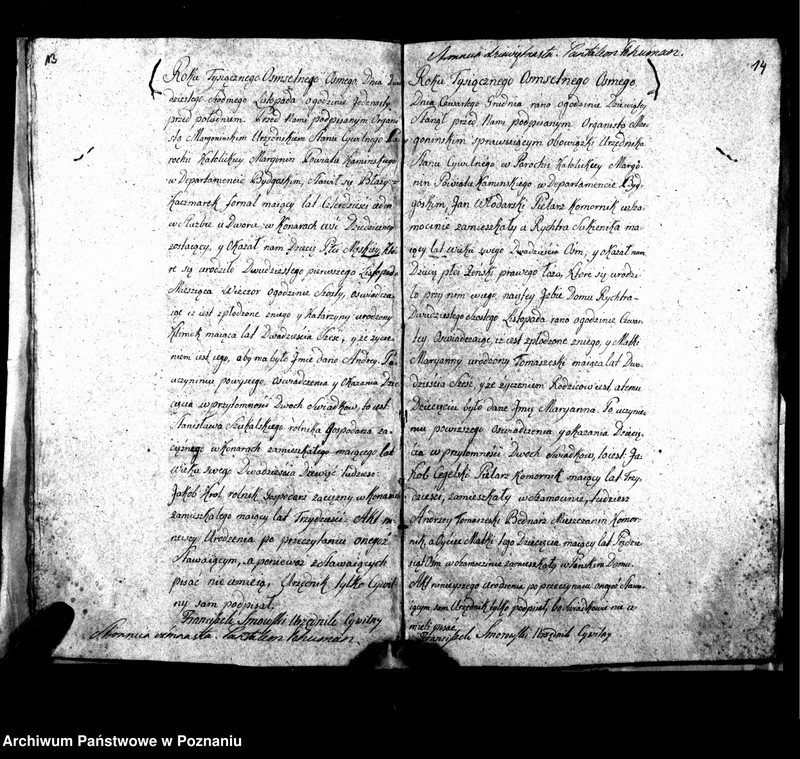 113
Roku Tysiącznego Osmsetnego Osmego, Dnia
dziestego siodmego Listopada o godzinie Jedenasty
przed południem. Przed Nami podpisanym Organi
stą Margoninskim Urzędnikiem Stanu Cywilnego
rocki Katolickiey Margonin Powiatu Kaminskiego
w Departamencie Bydgoskim, Stawił się Błazy
Kaczmarek fornal maiący lat Czterdziesci
w Służbie u Dworu w Konarach Wsi Dziedziczney
zostaiący, y Okazał nam Dziecię Płci Męskiey, Któ
re się urodziło Dwudziestego pierwszego Listopada
Miesiąca Wieczor o godzinie Szosty, oswiadcza
iąc iż iest spłodzone z niego y Katarzyny urodzony
Klimek maiącą lat Dwadziescia Szesc, y że życze
niem iest iego, aby mu było Jmie dano Andrzy. Po
uczynieniu powyżego, Oswiadczenia y Okazania Dzie
cięcia w przytomnosci Dwoch Swiadkow, to iest:
Stanisława Szukalskiego rolnika Gospodarza za
cyznego w Konarach zamieszkałego maiącego lat
Wieku swego Dwadziescia Dziewięć tudziesz
Jakob Krol rolnik Gospodarz zacyzny w Konarach
zamieszkałego maiący lat Trzydziesci. Akt ni
nieyszy Urodzenia po przeczytaniu onegoż
Stawaiącym, a poniewoz z Stawaiących
pisać nie umieią, Urzędnik tylko Cywil
ny sam podpisał.
Franciszek Smowski Urzędnik Cywilny
Pantaleon Schuman.
Pantaleon Schuman.
14
Roku Tysiącznego Osmsetnego Osmego
Dnia Czwartego Grudnia rano o godzinie Dziewiąty
Stanął przed Nami podpisanym Organistą Mar
goninskim sprawuiącym obowiązki Urzędnika
Stanu Cywilnego w Parocki Katolickiey Margo
nin Powiatu Kaminskiego w Departamencie Byd
goskim, Jan Włodarski Pielarz Komornik w Sza
mocinie zamieszkały a Rychtra Sukienika ma
iący lat Wieku swego Dwadziescia Osm, y okazał nam
Dziecię płci żenski prawego łoza, Ktore się urodzi
ło przy nim w iego naiętey Jzbie Domu Rychtra
Dwudziestego szostego Listopada rano o godzinie Czwar
tey. Oswiadczaiąc, iż iest spłodzone z niego, y Matki
Maryanny urodzony Tomaszeski maiącą lat Dwa
dziescia Szesc, y że życzeniem Rodzicow iest a temu
Dziecięciu było dane Jmię Maryanna. Po uczynie
niu powyzszego Oswiadczenia y okazania Dziecię
cia w przytomnosci Dwoch Swiadkow, to iest: Ja
kob Cegelski Pielarz Komornik maiący lat Trzy
dziesci, zamieszkały w Szamocinie, tudziesz
Andrzey Tomaszeski Bednarz Mieszczanin Komor
nik, a Oyciec Matki tego Dziecięcia maiący lat
Osm w Szamocinie zamieszkały w Panskim Domu.
Akt ninieyszego Urodzenia po przeczytaniu onegoż Stawa
iącym sam Urzędnik tylko podpisał, bo Swiadkowie nie u
mieli pisać
Franciszek Smowski Urzędnik Cywilny
Archiwum Państwowe w Poznaniu